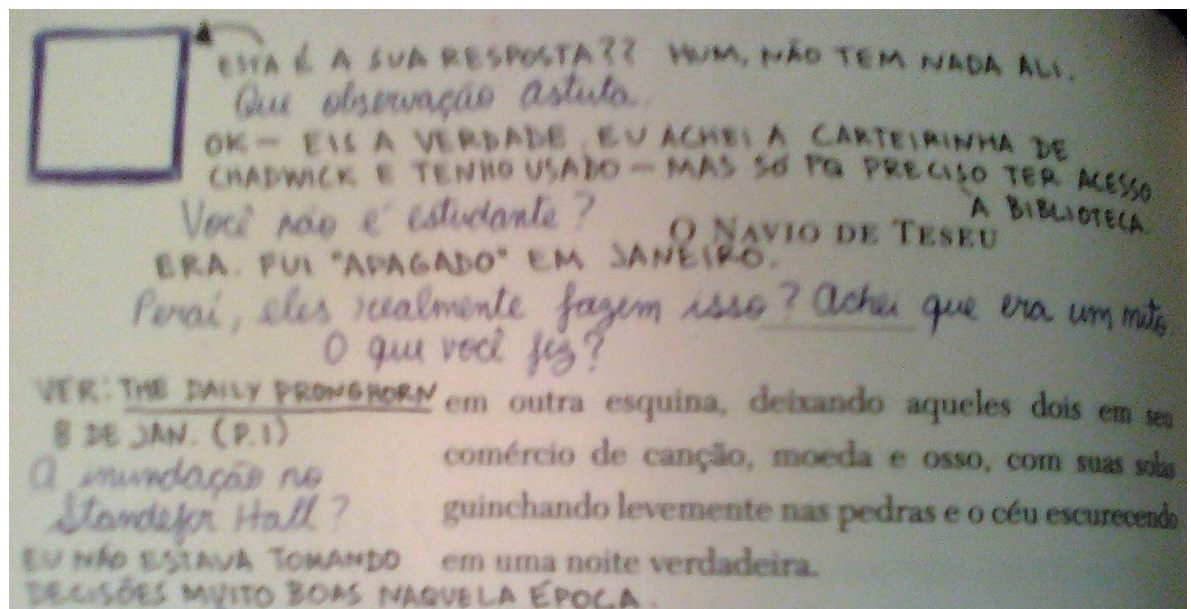 ESTA É A SUA RESPOSTA?? HUM, NÃO TEM NADA ALI.
Que observação astuta.
OK – EIS A VERDADE. EU ACHEI A CARTEIRINHA DE
CHADWICK E TENHO USADO – MAS SÓ PQ PRECISO TER ACESSO
À BIBLIOTECA.
Você não é estudante?
O NAVIO DE TESEU
ERA. FUI "APAGADO" EM JANEIRO.
Peraí, eles realmente fazem isso? Achei que era um mito.
O que você fez?
VER: THE DAILY PRONGHORN
8 DE JAN. (P.1)
A inundação no
Standefer Hall?
EU NÃO ESTAVA TOMANDO
DECISÕES MUITO BOAS NAQUELA ÉPOCA.
em outra esquina, deixando aqueles dois em seu
comércio de canção, moeda e osso, com suas solas
guinchando levemente nas pedras e o céu escurecendo
em uma noite verdadeira.